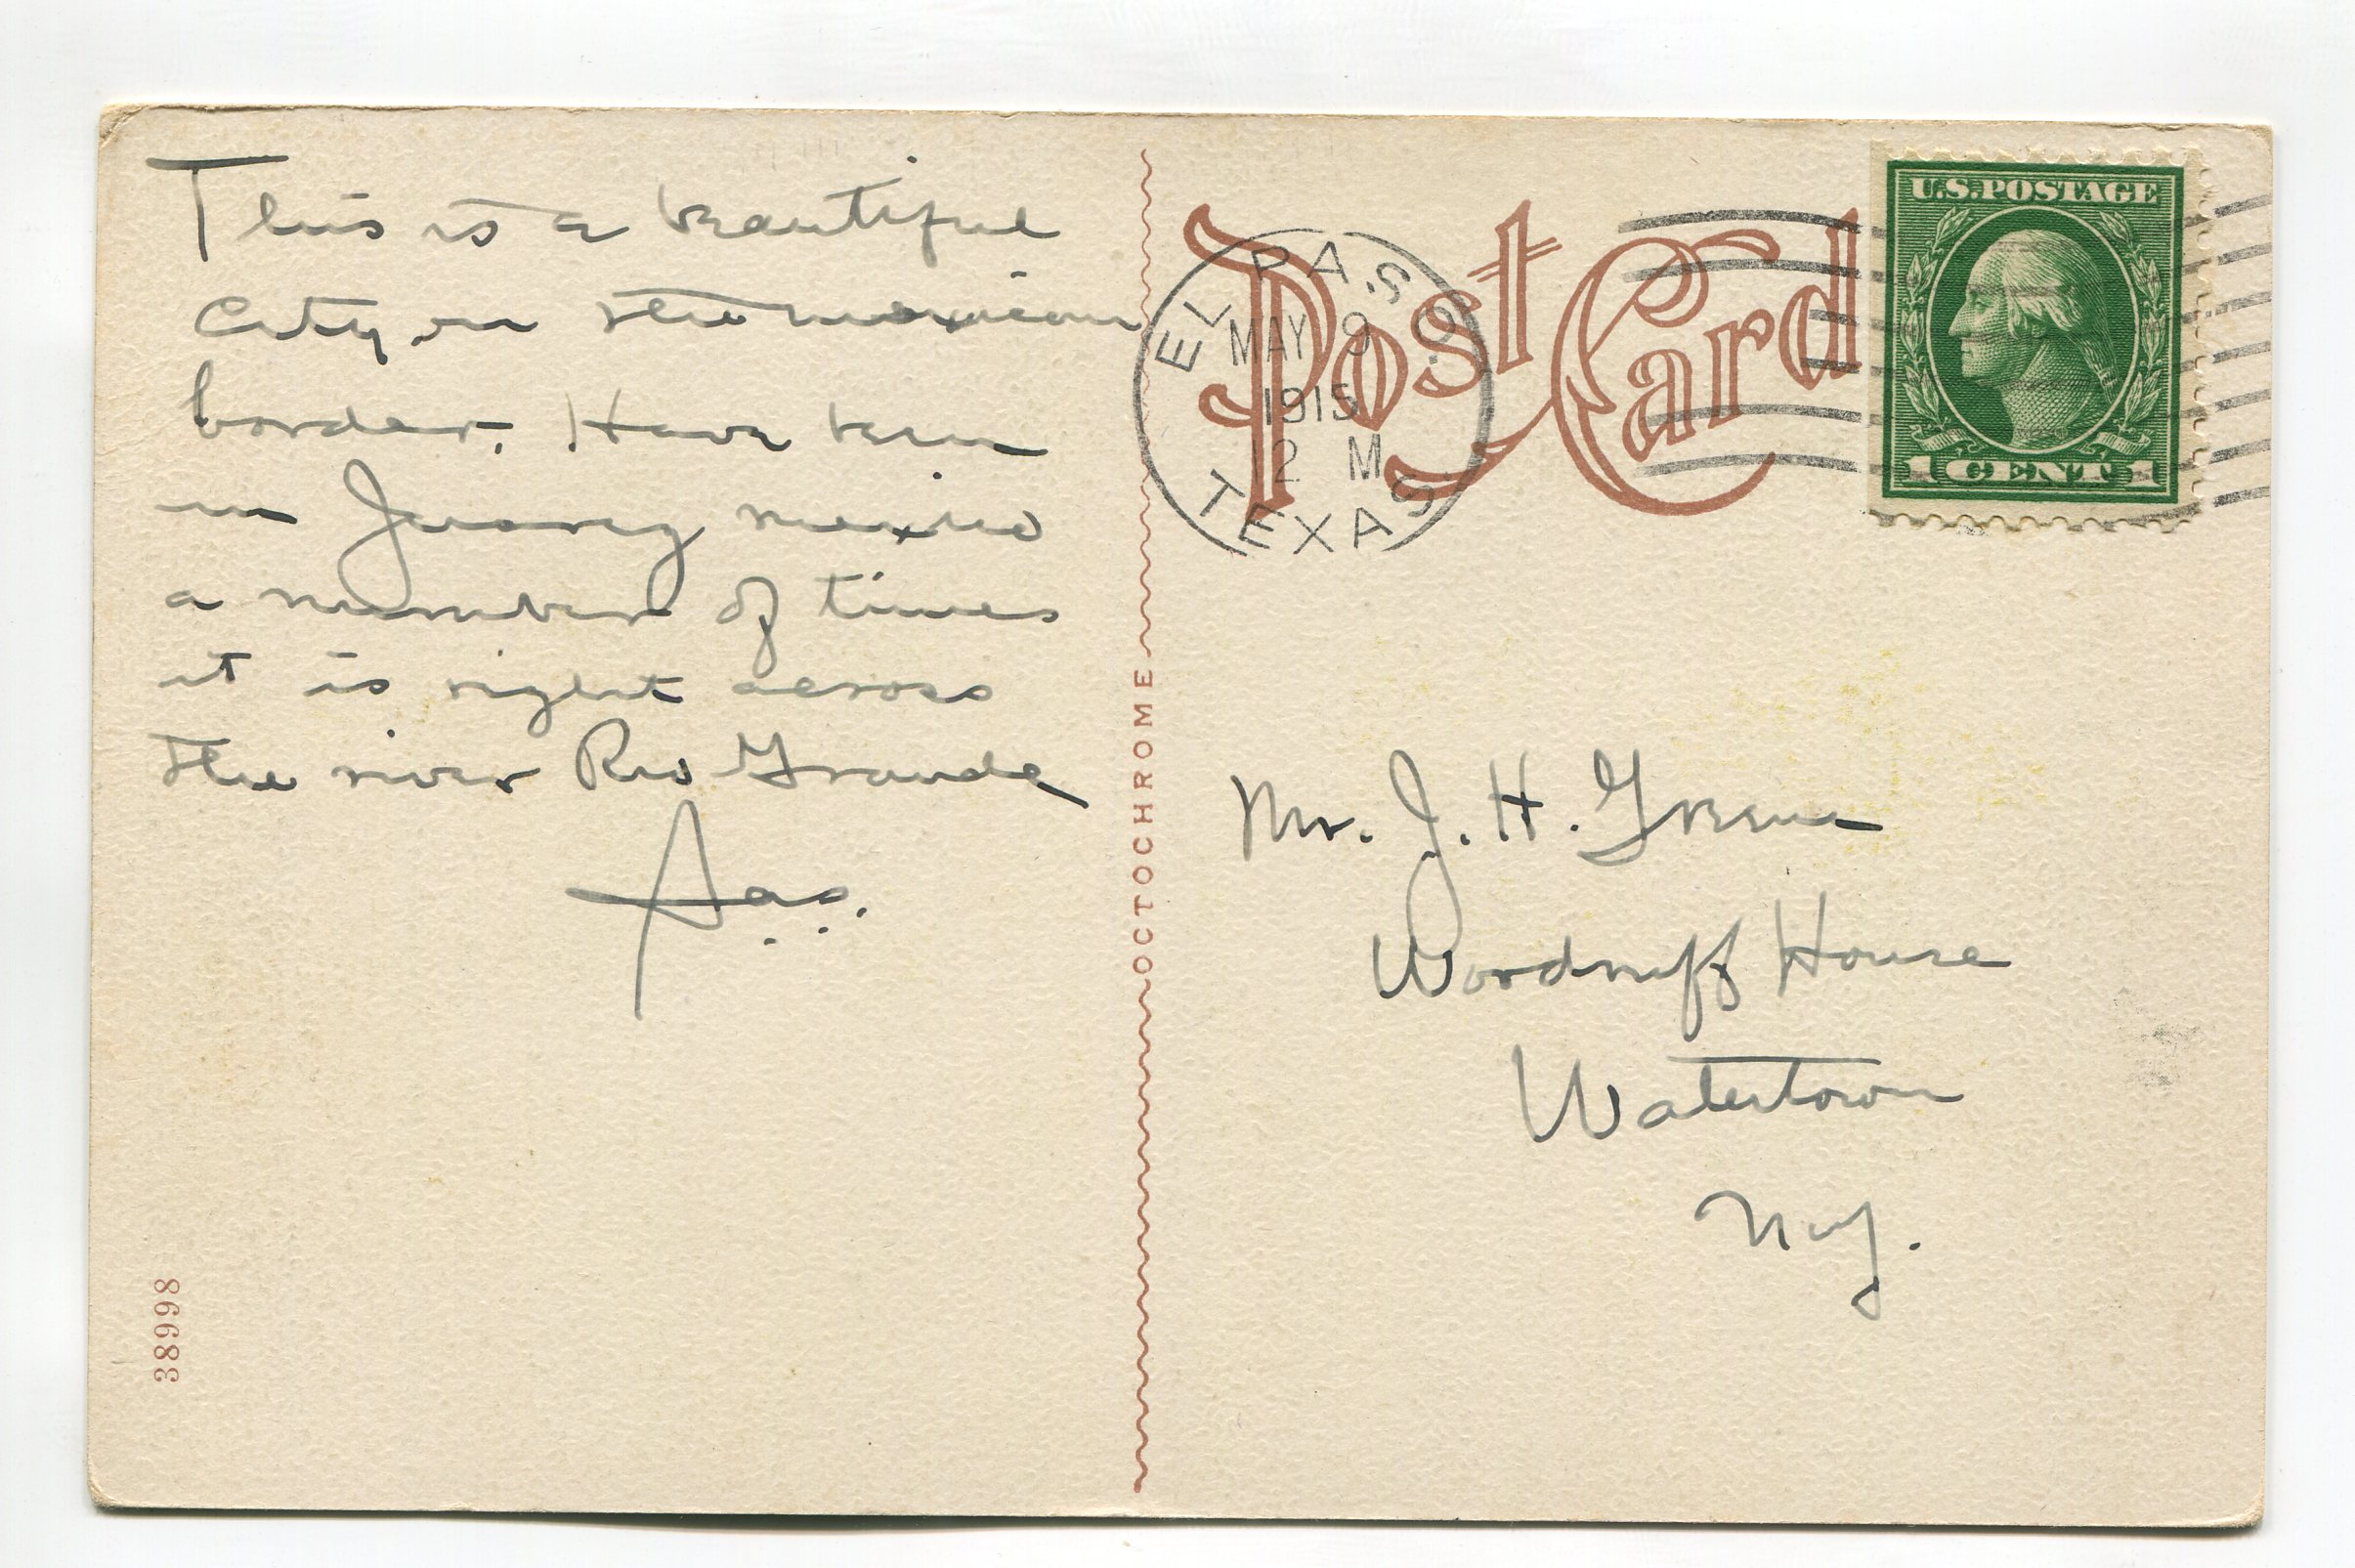 This is a beautiful
City on the mexican
border. Have been
in Juarez mexico
a number of times
it is right across
the river Rio Grande
OCTOCHROME
38998
Post Card
EL PASO
MAY 9
1915
12 M
TEXAS
U.S. POSTAGE
1 CENT 1
Mr. J. H. Green
Woodruff House
Watertown
N.Y.